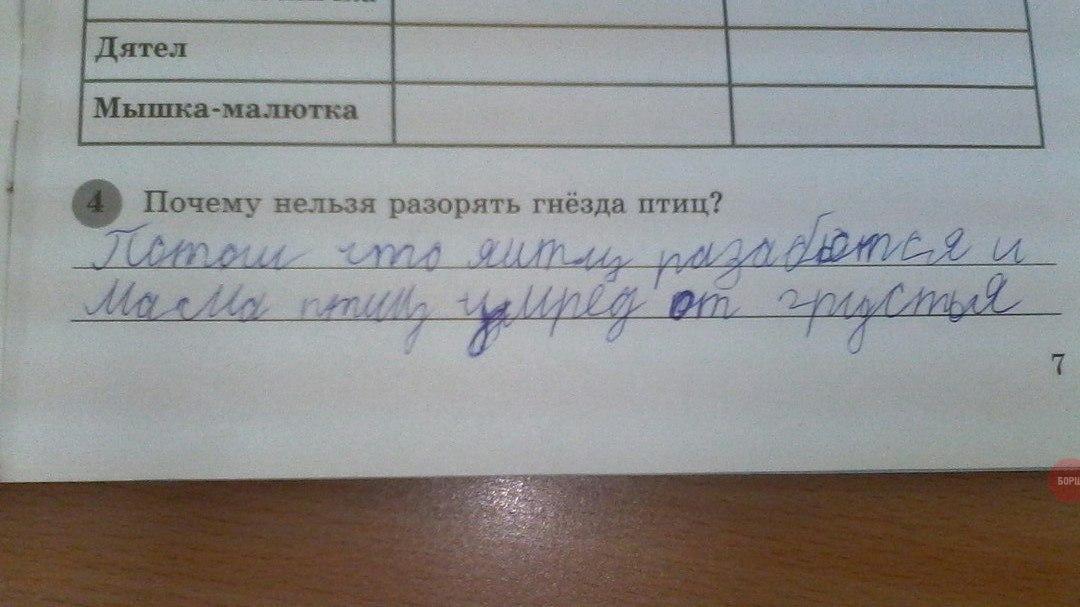 Дятел
Мышка-малютка
4 Почему нельзя разорять гнёзда птиц?
Потом что яитц разабьются и
мама птиц умрёд от грустья
7
БОРЩ